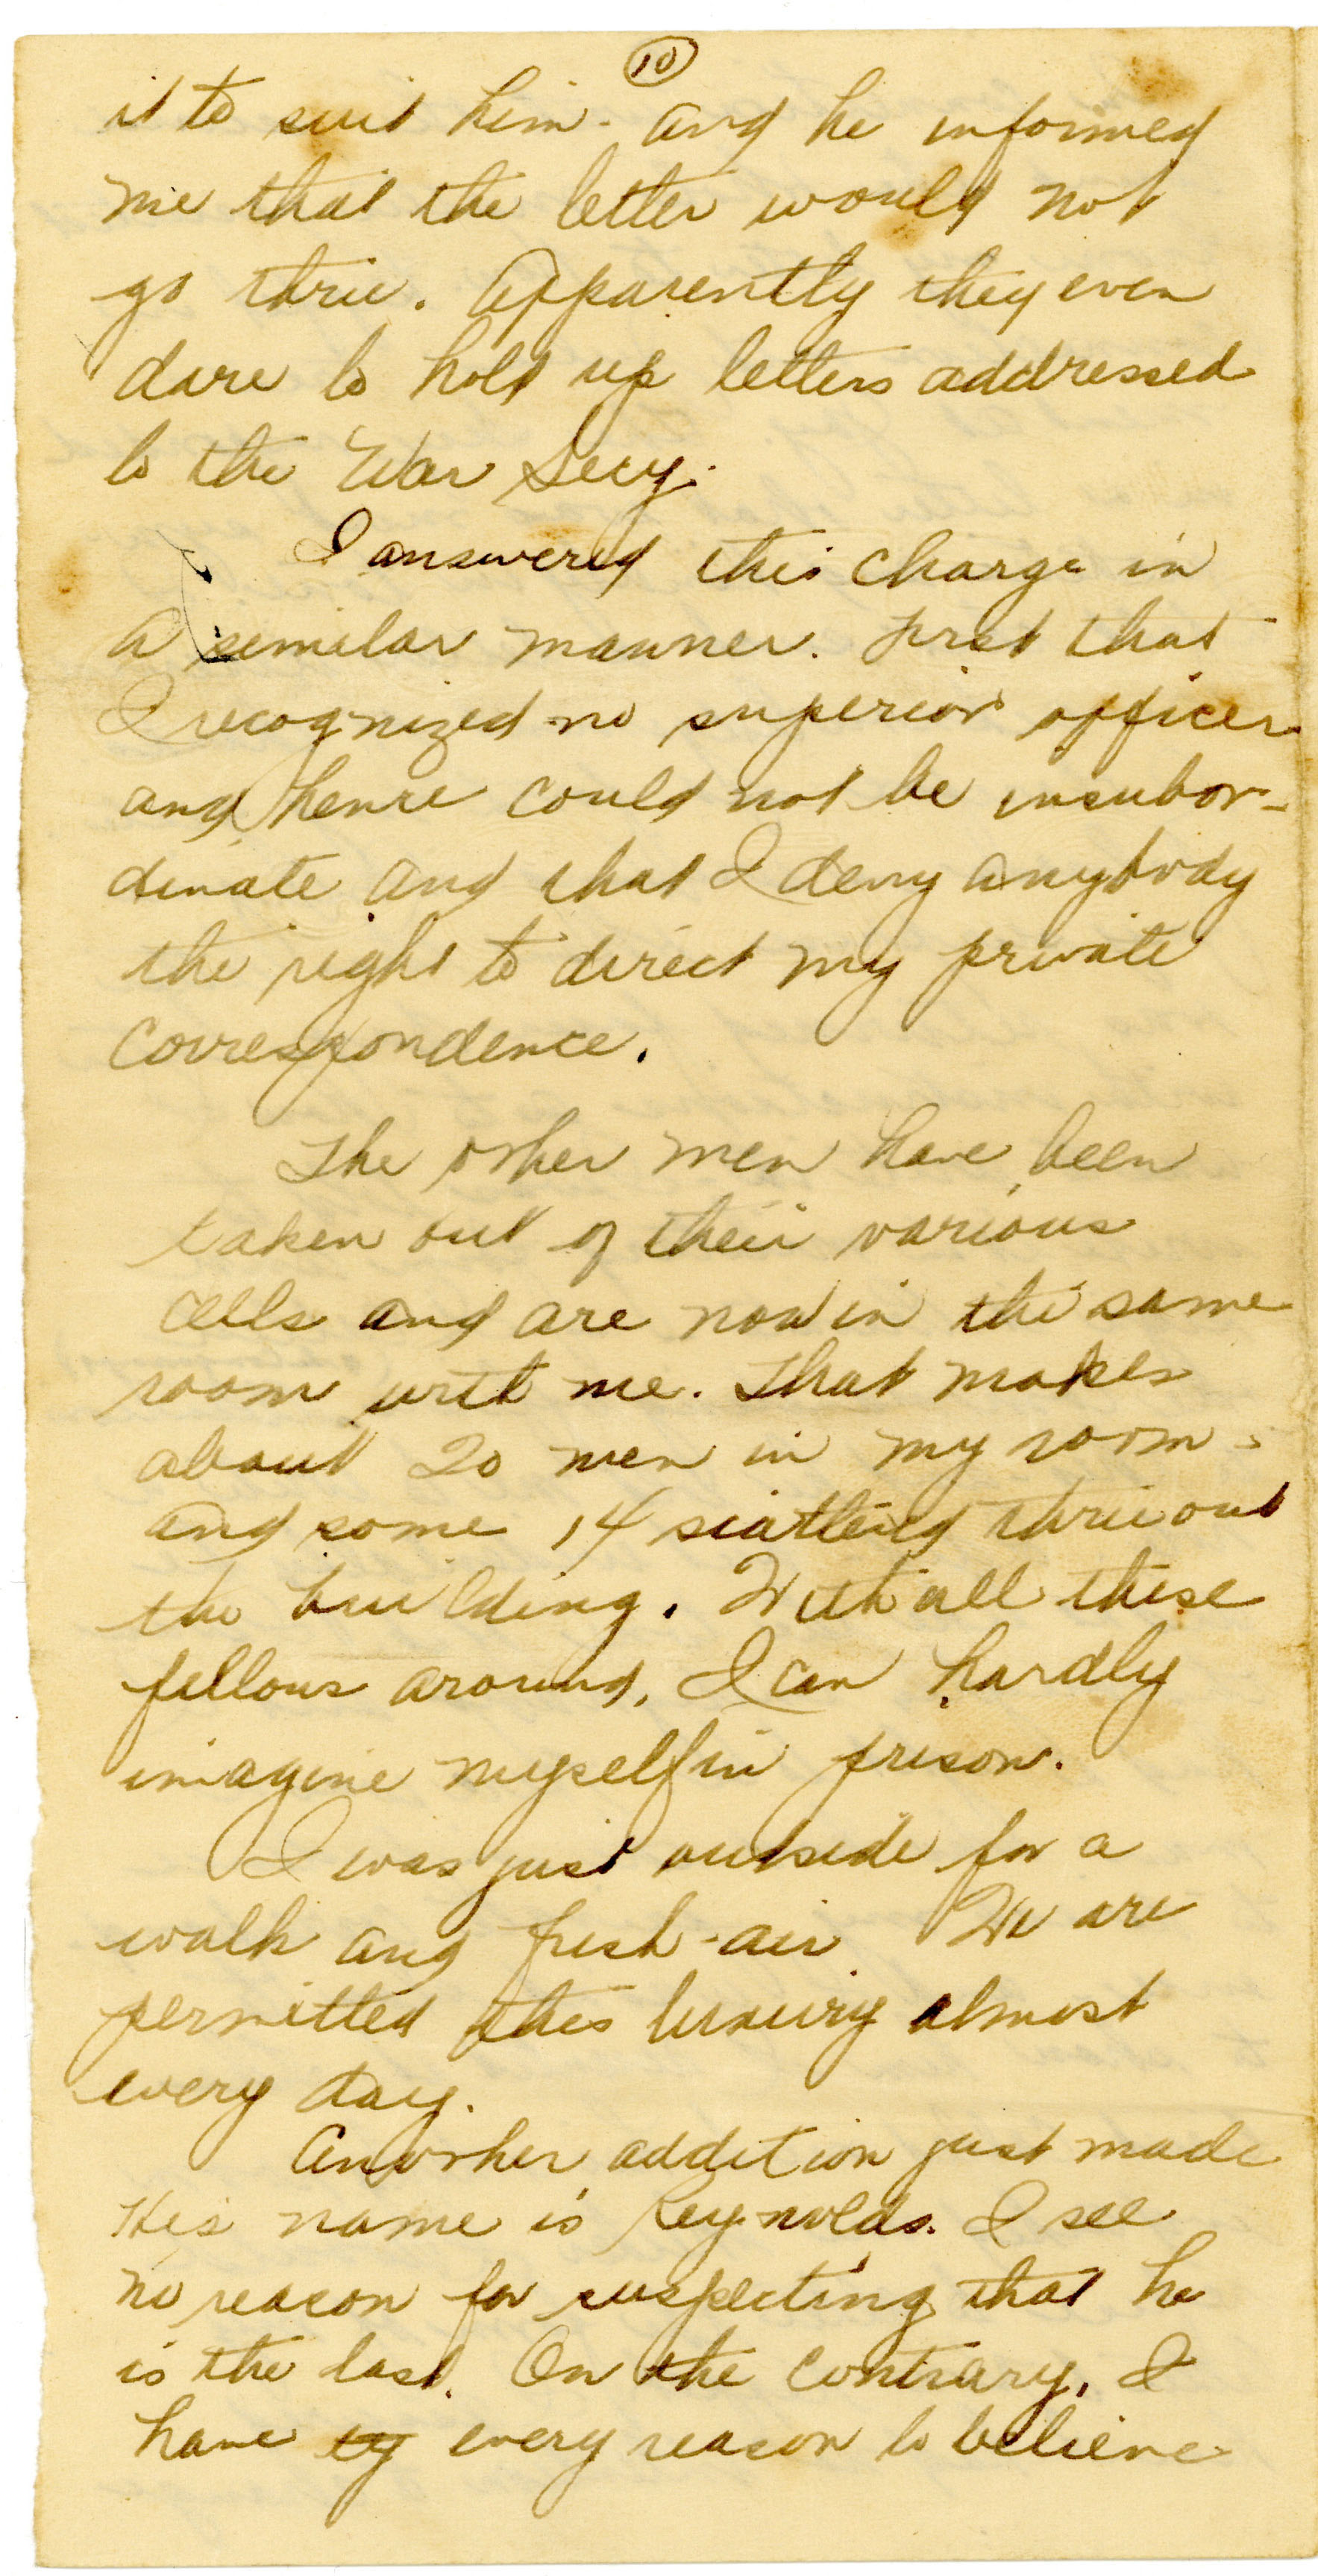 10
it to suit him - and he informed
me that the letter would not
go thru. Apparently they even
dare to hold up letters addressed
to the War Secy.
I answered this charge in
a similar manner. First that
I recognized no superior officer
and hence could not be insubor-
dinate and that I deny anybody
the right to direct my private
correspondence.
The other men have been
taken out of their various
cells and are now in the same
room with me. That makes
about 20 men in my room -
and some 14 scattered thruout
the building. With all these
fellows around, I can hardly
imagine myself in prison.
I was just outside for a
walk and fresh-air We are
permitted this luxury almost
every day.
Another addition just made
His name is Reynolds. I see
no reason for suspecting that he
is the last. On the contrary, I
have ey every reason to believe